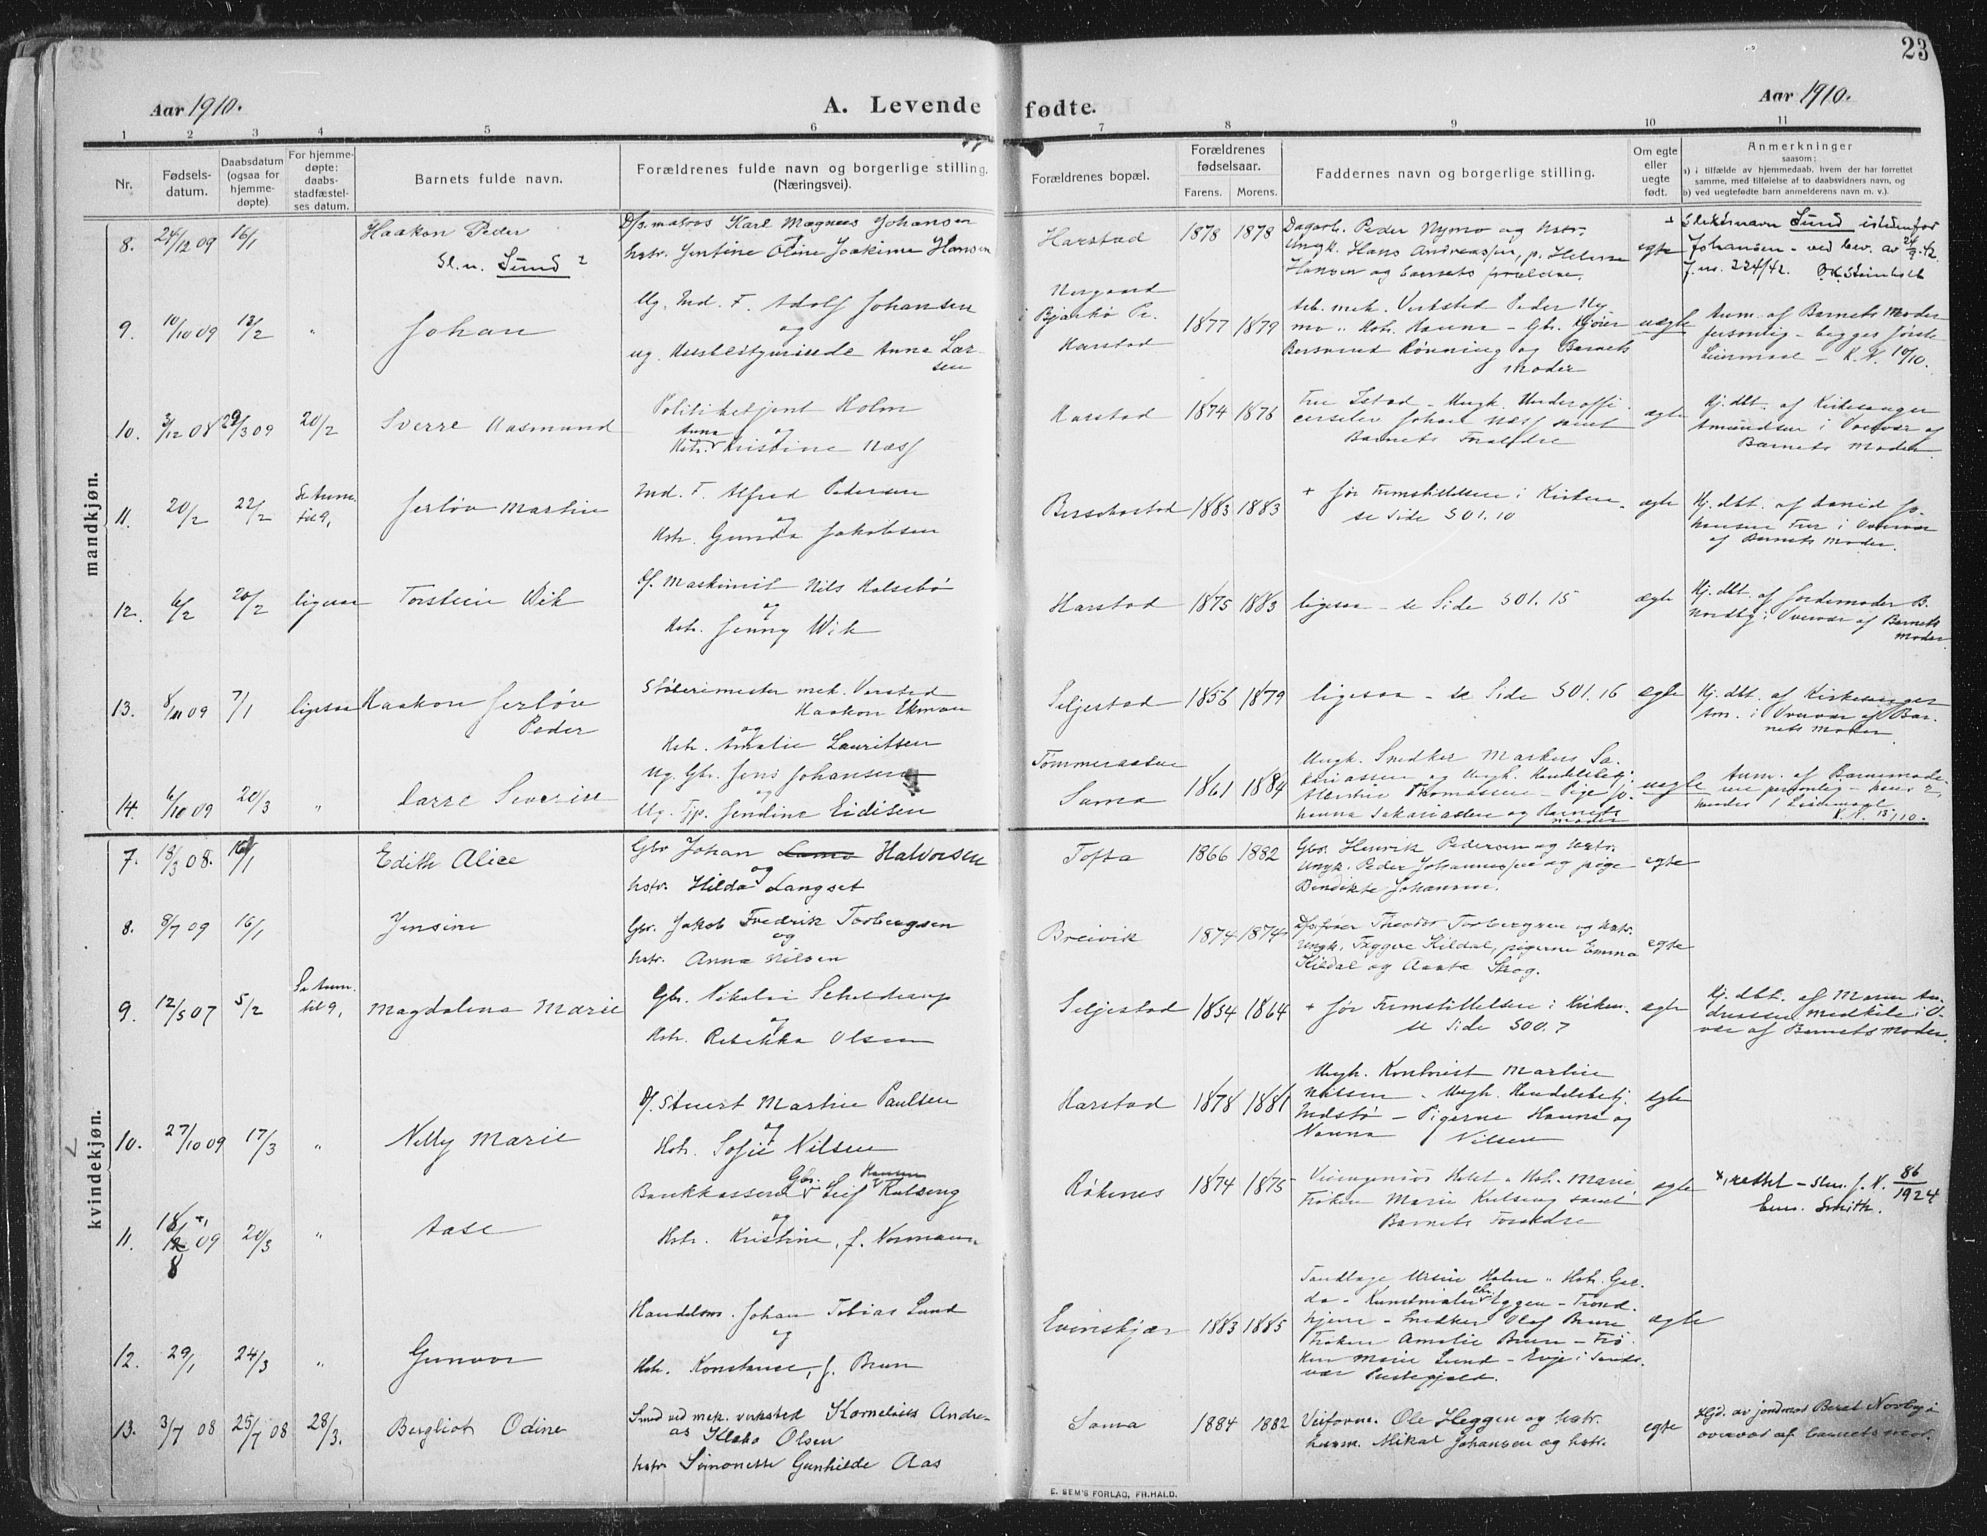 23
Aar 1910.
A. Levende fødte.
Aar 1910.
1 2 3 4 5 6 7 8 9 10 11
Nr.
Fødsels-
datum.
Daabsdatum
(ogsaa for
hjemme-
døpte)
For hjemme-
døpte:
daabs-
stadfæstel-
ses datum.
Barnets fulde navn.
Forældrenes fulde navn og borgerlige stilling.
(Næringsvei).
Forældrenes bopæl.
Forældrenes
fødselsaar.
Farens. Morens.
Faddernes navn og borgerlige stilling.
Om egte
eller
uegte
født.
Anmerkninger
saasom:
a) i tilfælde av hjemmedaab, hvem der har forrettet
samme, med tilføielse af to daabsvidners navn, og
b) ved uegtefødte barn anmelderens navn m. v.).
mandkjøn.
8. 24/12 09 16/1
Haakon Peder
Sl.n. Sund
D/s.matros Karl Magnus Johansen
hstr. Jentine Oline Joakime Hansen
Harstad
1878 1878
Dagarb. Peder Nymo og hstr.
Ungk. Hans Andreassen, p. Helene
Hansen og barnets forældre.
egte
Slektsnavn Sund istedenfor
Johansen - ved bev. av 24/9.42
J.nr. 224/42.
9. 10/10 09 13/2 "
Johan
Ug. Ind. F. Adolf Johansen
og
ug. Husbestyrerinde Anna Lar-
sen
i Bjarkø Pr.
Harstad
1877 1879
Arb. mek. Verksted Peder Ny
mo " Hstr. Hanna - Gbr.
Bersvend Rønning og Barnets
Moder
uegte
Anm. af Barnets Moder
personlig - begges første
Leiermaal - K. N. 10/10.
10. 3/12 08 29/3 09 20/2
Sverre Aasmund
Politibetjent Holm
Anna og
Hstr. Kristine Næss
Harstad
1874 1876
Fru Istad - Ungk. Underoffi-
cerselev Johan Næss samt
Barnets Forældre
egte
Hj. dbt. af Kirkesanger
Amundsen i Overvær af
Barnets Moder
11. 20/2 22/2 Se Anm.
til 9,
Jerløv Martin
Ind. F. Alfred Pedersen
og
Hstr. Gunda Jakobsen
Bersebostad
1883 1883
+ før Fremstillelsen i Kirken
se Side 301. 10
egte
Hj. dbt. af David Jo-
hansens Fru i Overvær
af Barnets Moder.
12. 6/2 20/2 ligesaa
Torstein Wik
D/. Maskinist Nils Halsebø
og
Hstr. Jenny Wik
Harstad
1875 1883
ligesaa - se Side 301. 15
egte
Hj. dbt. af Jordemoder B.
Nordby i Overvær af Barnets
Moder
13. 8/11 09 7/1 ligesaa
Haakon Jerløv
Peder
Støberimester mek. Versted
Haakon Ekman
og
Hstr. Amalie Lauritsen
Seljestad
1856 1879
ligesaa - se Side 301. 16
egte
Hj. dbt. af Kirkesanger
Am. i Overvær af Bar-
nets Moder
14. 6/10 09 20/3 "
Severin
Ug. Gbr. Jens Johansen
og
Ug. Tjp. Jendine Eidisen
Sama
1861 1884
Ungk. Snedker Markus Sa-
kariassen og Ungk. Handelsbetj.
Martin Thomassen - Pige Jo-
hanna Sakariassen og Barnets
Moder
uegte
Anm. af Barnemode-
ren personlig - hans 2,
hendes 1 Leiermaal
K. N. 13/10.
kvindekjøn.
7. 18/3 08. 16/1
Edith Alice
Gbr Johan Halvorsen
og
hstr. Hilda Langset
Tofta
1866 1882
Gbr. Henrik Pedersen og hstr.
Ungk. Peder Johannessen og pige
Bendikte Johansen.
egte
8. 8/7 09 16/1
Jensine
Gbr. Jakob Fredrik Torbergsen
og
hstr. Anna Nilsen
Breivik
1874 1874
D/s.fører Theodor Torbergsen og hstr.
Ungk. Tryggve Kildal, pigerne Emma
Kildal og Aasta Skog.
egte
9. 12/5 07 5/2 Se Anm.
til 9,
Magdalena Marie
Gbr. Nikolai Schelderup
og
Hstr. Rebekka Olsen
Seljestad
1854 1864
+ før Fremstillelsen i Kirken
se Side 300. 7
egte
Hj. dbt. af Maren An-
dreassen Medkile i O-
vær af Barnets Moder.
10. 27/10 09 17/3 "
Nelly Marie
D/. Stuert Martin Paulsen
og
Hstr. Sofie Nilsen
Harstad
1878 1881
Ungk. Kontorist Martin
Nilsen - Ungk. Handelsbetj.
Indstø - Pigerne Hanna og
Nanna Nilsen
egte
11. 18/8 09 20/3 "
Aase
Gbr. Leif Kulseng
og
Hstr. Kristine, f. Normann
Røkenes
1874 1875
Veiingeniør Holst - Hstr. Marie
Frøken Marie Kulseng samt
Barnets Forældre
egte
*, rettet - skr. f. K. 86/1924
Em. Smith.
12. 29/1 24/3 "
Gunvor
Handelsm. Johan Tobias Lund
og
Hstr. Konstanse, f. Brun
Evinskjær
1883 1885
Tandlæge Ursin Holm " Hstr. Ger-
da - Kunstmaler Chr. Eggen - Trond-
hjem - Snedker Olaf Brun
Frøken Amalie Brun - Frø-
ken Marie Lund - Evje i Sands-
vær Prestegjeld.
egte
13. 3/7 08 25/7 08 28/3.
Bergliot Odine
Smed ved mek. verksted Kornelius Andre-
as Klabo Olsen
hstr. Simonette Gunhilde Aas
Sama
1884 1882
Veiforvn. Ole Heggen og hstr.
Mikal Johansen og hstr.
egte
Hjd. av jordmor Berat Nordby i
overvær af barnets mor.
E. SEM'S FORLAG, FR.HALD.